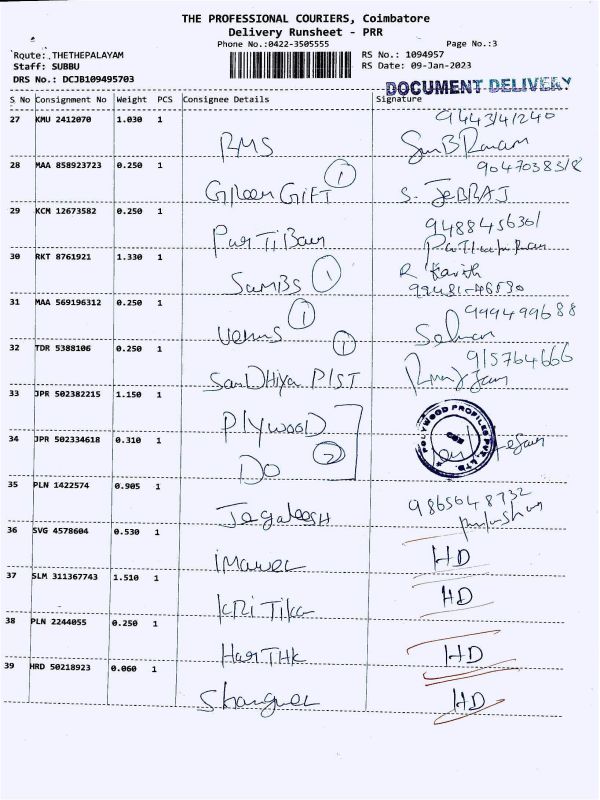 THE PROFESSIONAL COURIERS, Coimbatore
Delivery Runsheet - PRR
Phone No.:0422-3505555
Page No.:3
Route: THETHEPALAYAM
RS No.: 1094957
Staff: SUBBU
RS Date: 09-Jan-2023
DRS No.: DCJB109495703
DOCUMENT DELIVERY
S No Consignment No Weight PCS Consignee Details Signature
27 KMU 2412070 1.030 1 RMS
28 MAA 858923723 0.250 1 Green GiFT 1 S. JeBRAJ
29 KCM 12673582 0.250 1 ParTiBan
30 RKT 8761921 1.330 1 SamBS 1
31 MAA 569196312 0.250 1 Venus 1
32 TDR 5388106 0.250 1 SanDHiya PIST 1 915764666
33 JPR 502382215 1.150 1 PLYwooD POLYWOOD PROFILES PVT. LTD.
34 JPR 502334618 0.310 1 DO 2
35 PLN 1422574 0.905 1 JegaleesH 9865648732
36 SVG 4578604 0.530 1 HD
37 SLM 311367743 1.510 1 KRiTika HD
38 PLN 2244055 0.250 1 HariTHK HD
39 HRD 50218923 0.060 1 HD